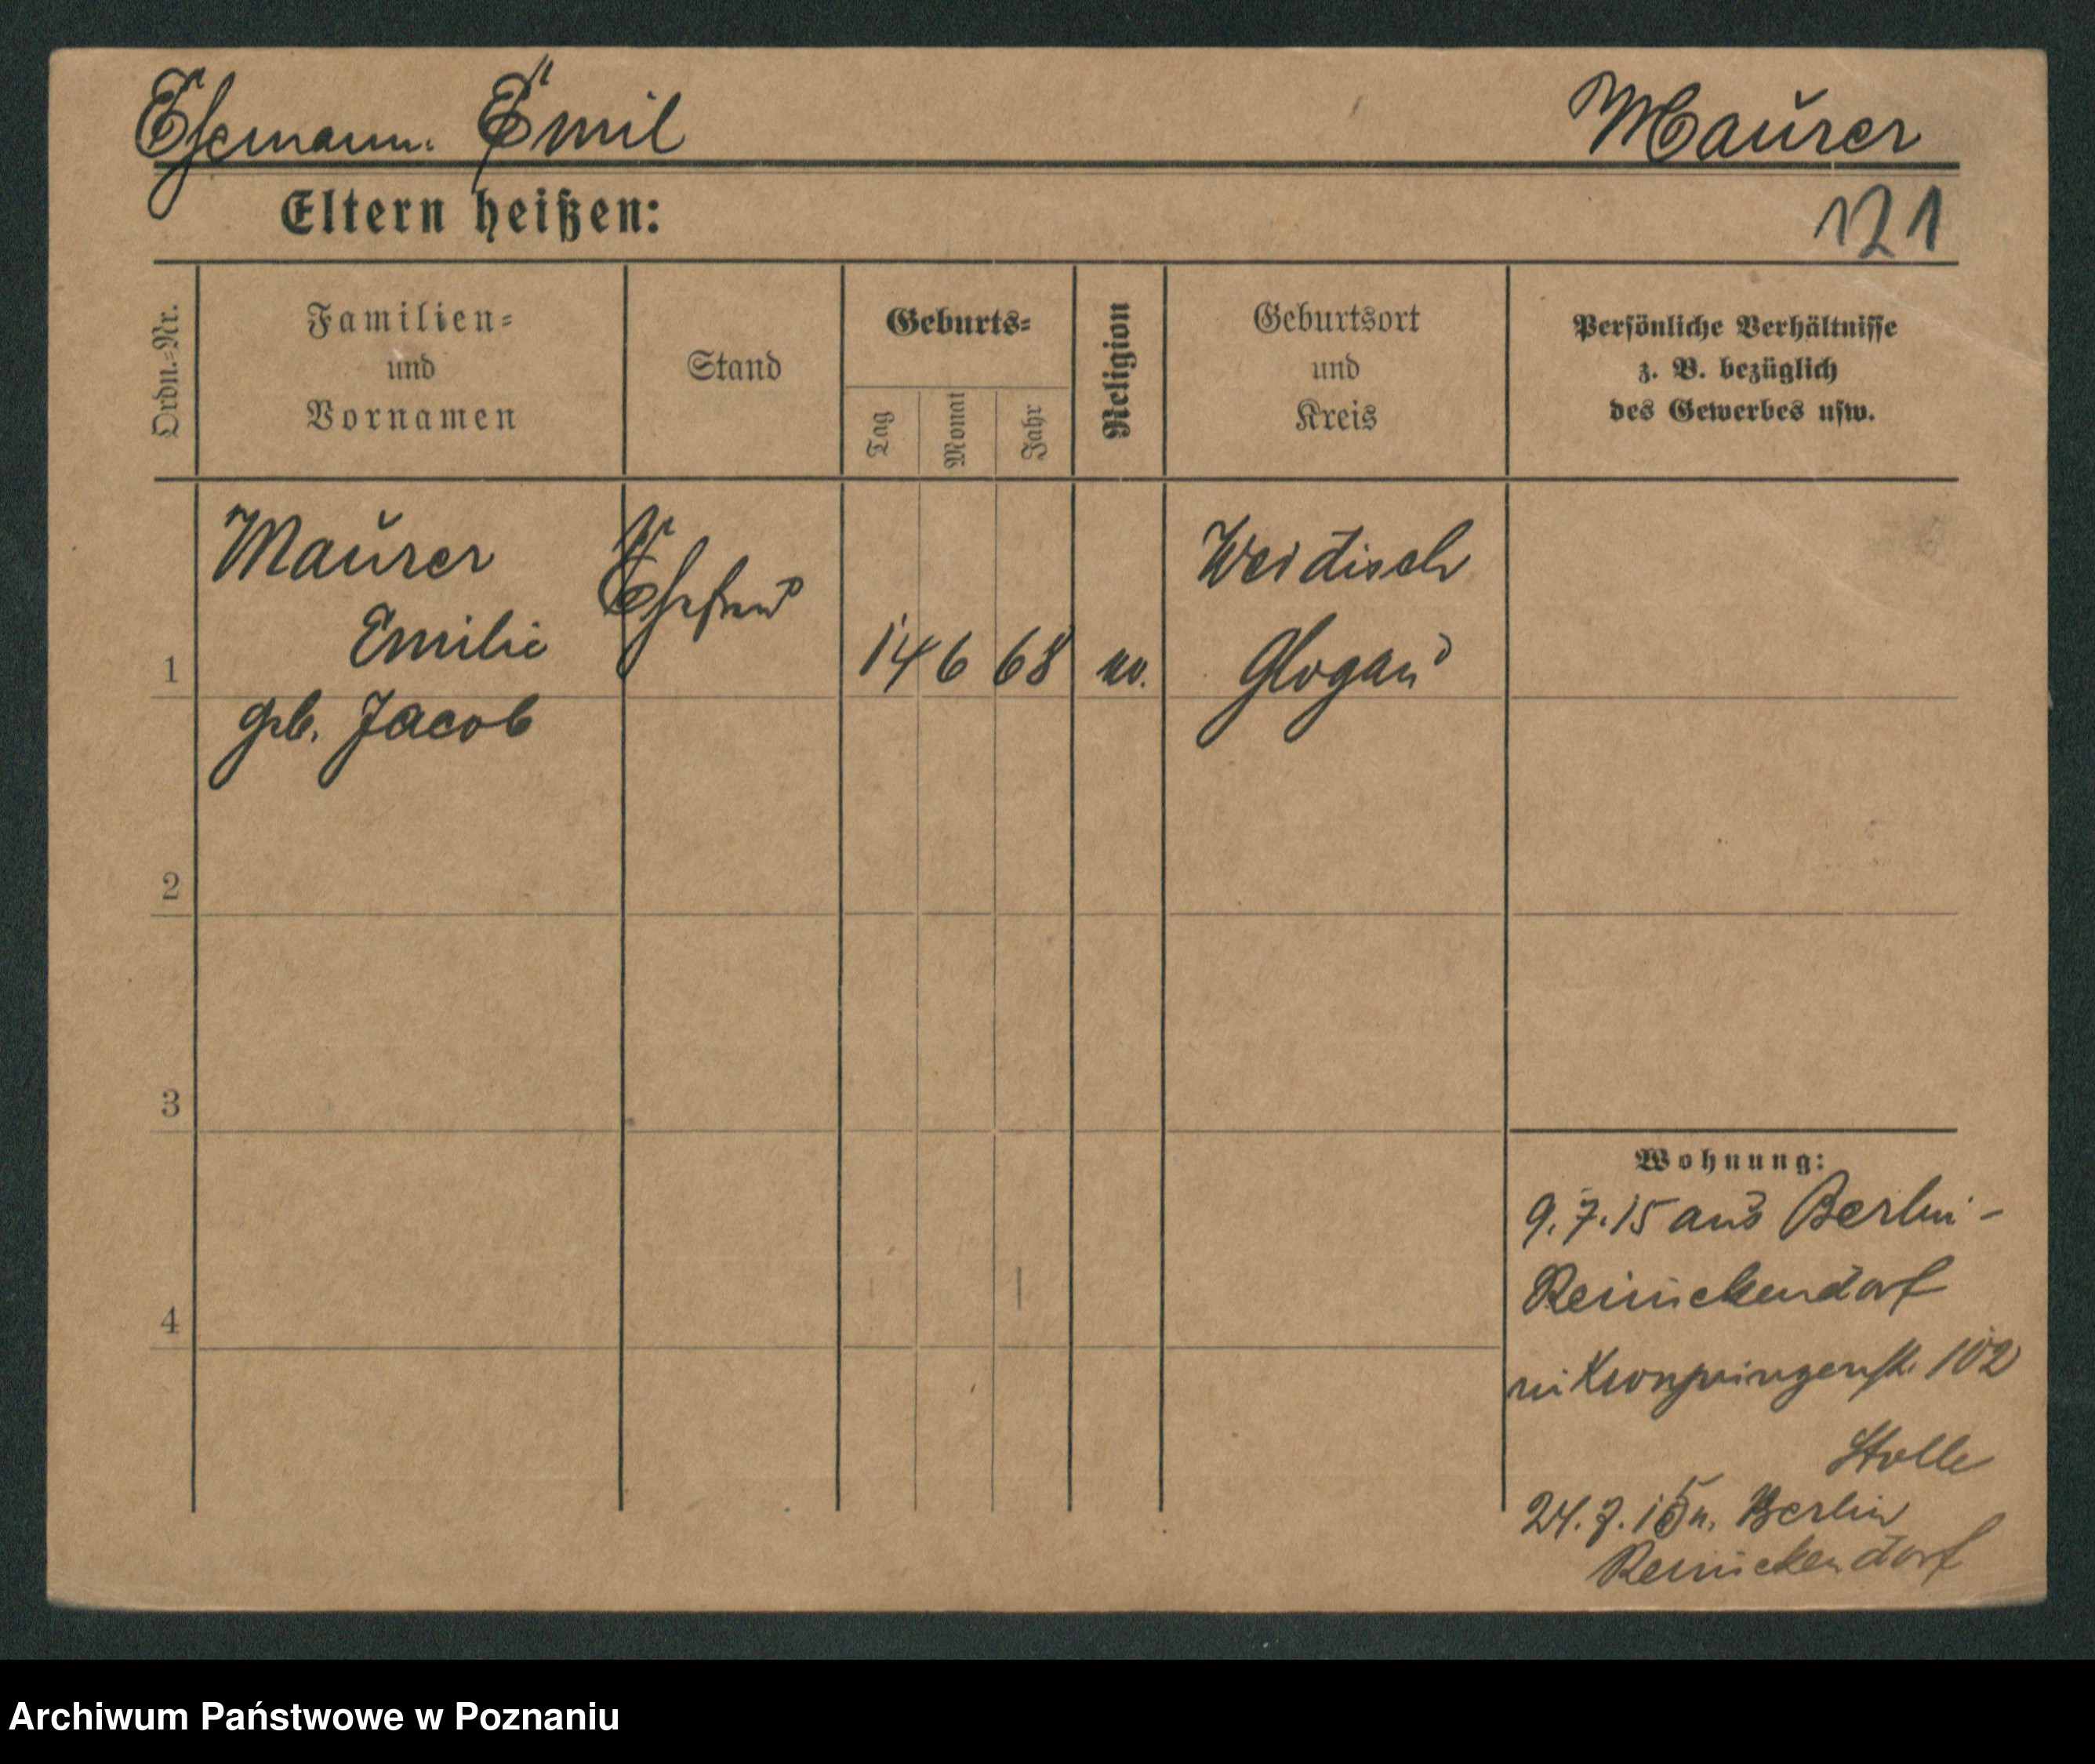 Ehemann: Emil Maurer
Eltern heißen: 121
Ordn.=Nr.
Familien=
und
Vornamen
Stand
Geburts=
Tag
Monat
Jahr
Religion
Geburtsort
und
Kreis
Persönliche Verhältnisse
z. B. bezüglich
des Gewerbes usw.
1
Maurer
Emilie
geb. Jacob
Ehefrau
14 6 68
ev.
Weidisch
Glogau
2
3
4
Wohnung:
9.7.15 aus Berlin-
Reinickendorf
Kronprinzenstr. 102
Stolle
24.7.15 n. Berlin
Reinickendorf
Archiwum Państwowe w Poznaniu